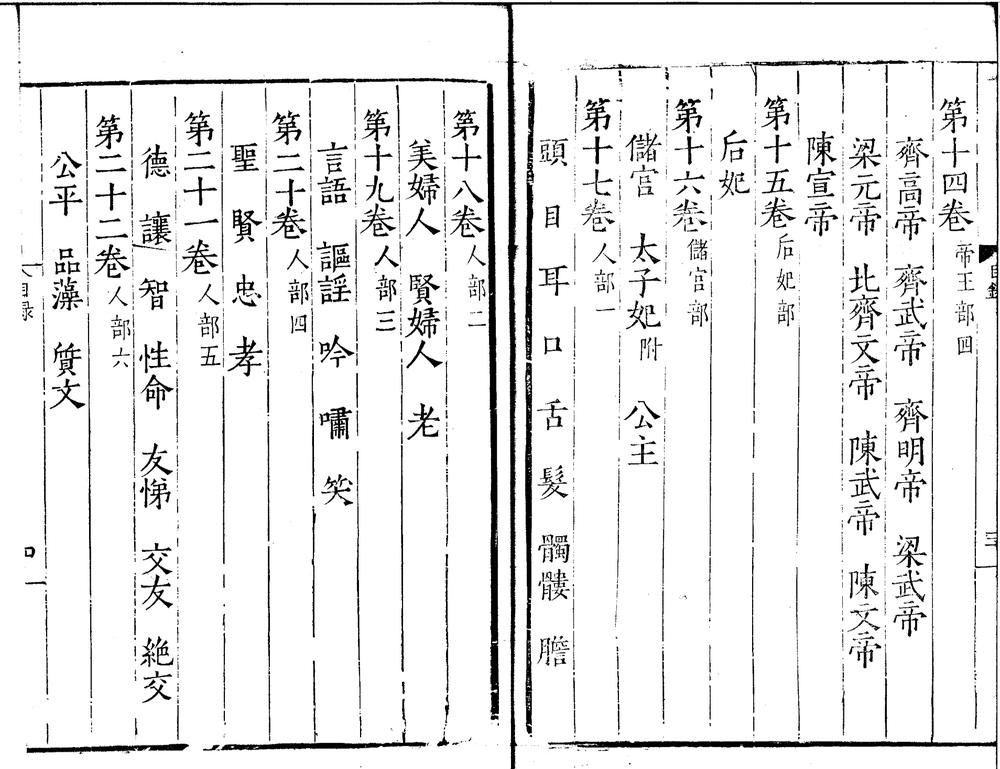 第十四卷 帝王部四
齊高帝 齊武帝 齊明帝 梁武帝
梁元帝 北齊文帝 陳武帝 陳文帝
陳宣帝
第十五卷 后妃部
后妃
第十六卷 儲宮部
儲宮 太子妃附 公主
第十七卷 人部一
頭 目 耳 口 舌 髮 髑髏 膽
第十八卷 人部二
美婦人 賢婦人 老
第十九卷 人部三
言語 謳謡 吟 嘯 笑
第二十卷 人部四
聖 賢 忠 孝
第二十一卷 人部五
德 讓 智 性命 友悌 交友 絶交
第二十二卷 人部六
公平 品藻 質文
目録